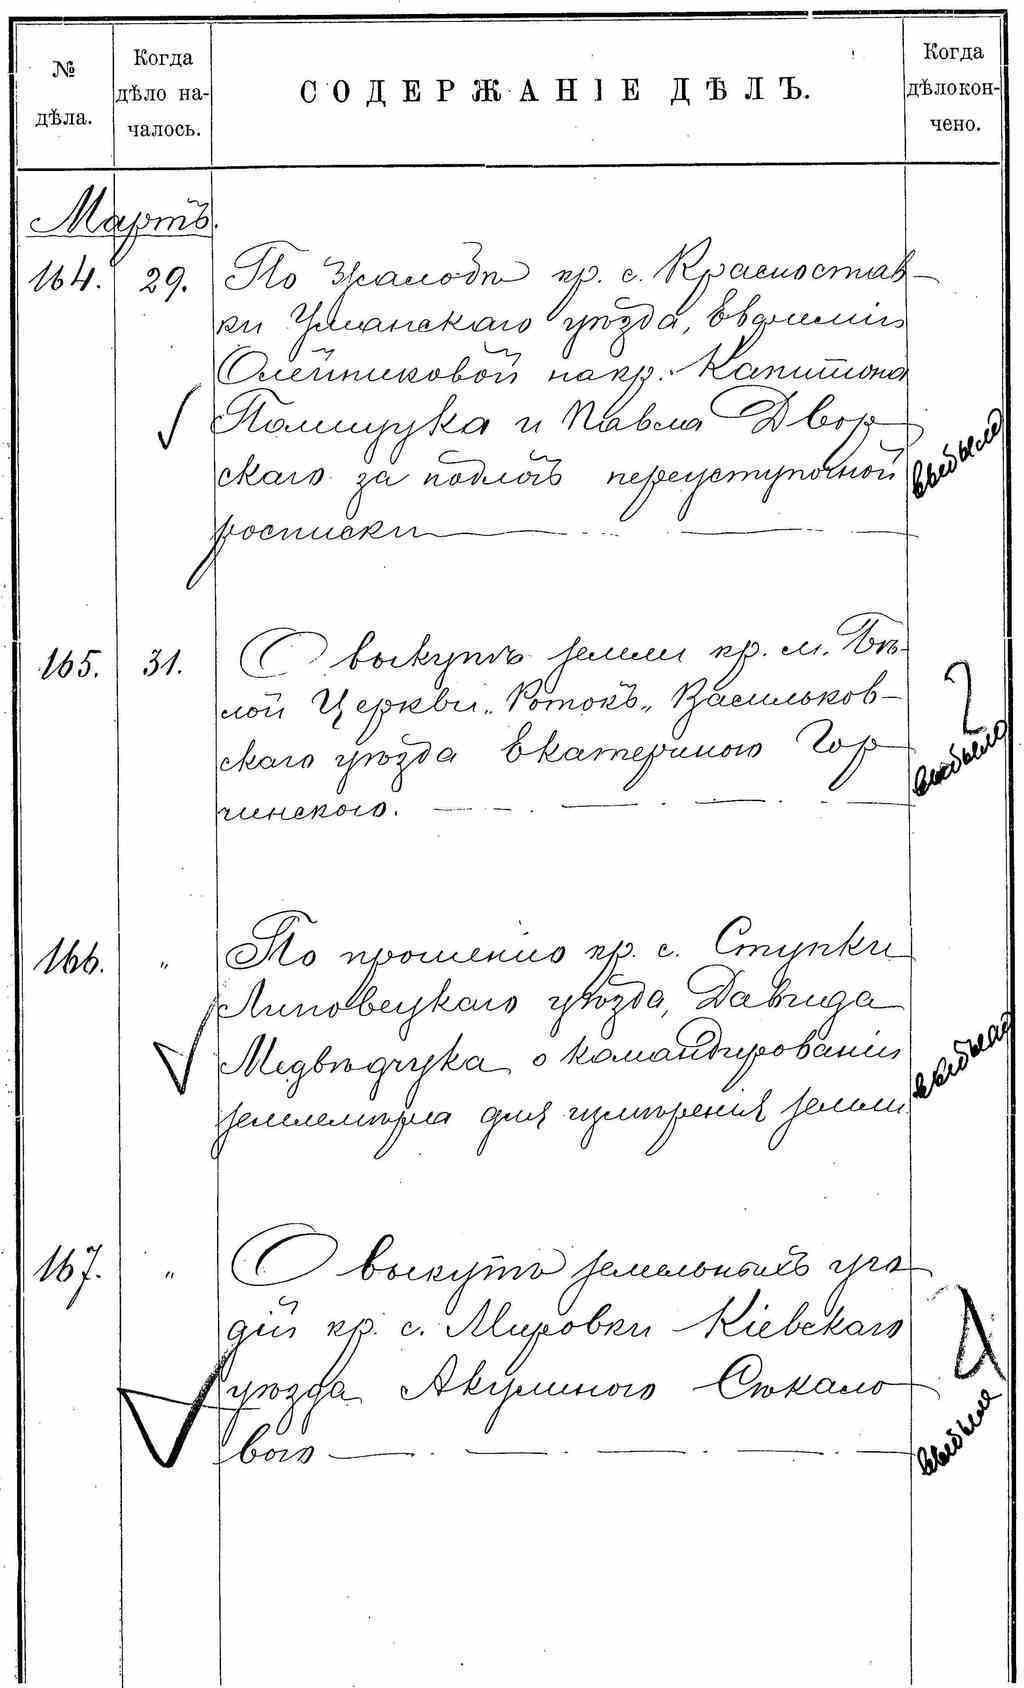 № дѣла. Когда дѣло началось. СОДЕРЖАНІЕ ДѢЛЪ. Когда дѣло кончено.
Мартъ.
164. 29. По жалобѣ кр. с. Красностав-
ки Уманскаго уѣзда, Евфиміи
Олейниковой на кр. Капитона
Полищука и Павла Двор
скаго за подлогъ переуступочной
росписки
выбыло
165. 31. О выкупѣ земли кр. м. Бѣ-
лой Церкви „Ротокъ„ Васильков-
скаго уѣзда Екатериною Гор
чинского.
2
выбыло
166. „ По прошенію кр. с. Ступки
Липовецкаго уѣзда, Давида
Медвѣдчука о командированіи
землемѣра для измѣренія земли
выбыла
167. „ О выкупѣ земельныхъ уго
дій кр. с. Мировки Кіевскаго
уѣзда Акулиною Сѣкало
вою
выбыла